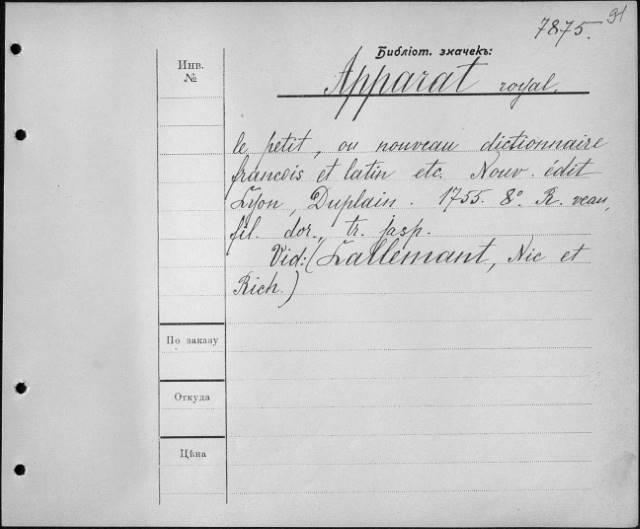 91
7875.
Библіот. значекъ:
Инв.
№
Apparat royal.
le petit, ou nouveau dictionnaire
francois et latin etc. Nouv. édit
Lyon, Duplain. 1755. 8º. R. veau,
fil. dor., tr. jasp.
Vid: (Lallemant, Nic et
Rich.)
По заказу
Откуда
Цѣна